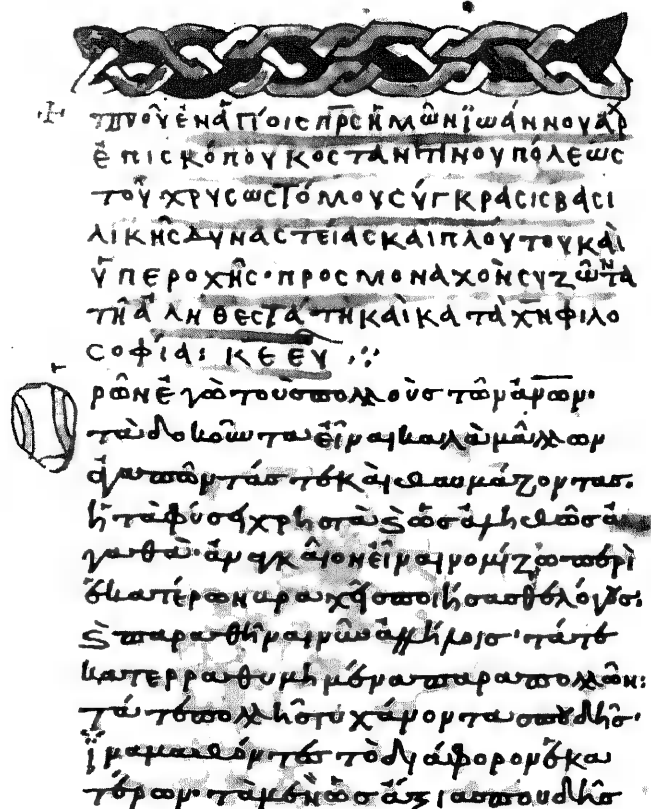 τπνοῦ ἐν ἁγίοις πρς ἡμῶν ἰωάννου ἀρχ
ἐπισκόπου κοσταντινουπόλεως
τοῦ χρυσωστόμου σύγκρασις βασι
λικῆς δυναστείας καὶ πλούτου καὶ
ὑπεροχῆς· πρὸς μοναχὸν συζῶντα
τῆ ἀληθεστάτη καὶ κατὰ χν φιλο
σοφία: κε ευ
ρῶν ἐγὼ τοὺς πολλοὺς τῶν ἀνων·
τὰ δοκοῦντα εἶναι καλὰ μᾶλλον
ἀγαπῶντάς τε καὶ θαυμάζοντας.
ἢ τὰ φύσει χρηστὰ καὶ ὡς ἀληθῶς ἀ
γαθὰ· ἀναγκαῖον εἶναι νομίζω περὶ
ἑκατέρων βραχεῖς ποιήσασθαι λόγους·
καὶ παραθεῖναι νῦν ἀλλήλοις· τά τε
κατερραθυμημένα παρὰ πολλῶν:
τά τε πολλῆς τυχάνοντα σπουδῆς·
ἵνα μαθόντες τὸ διάφορον ἑκα
τέρων· τὰ μὲν ὡς ἄξια σπουδῆς